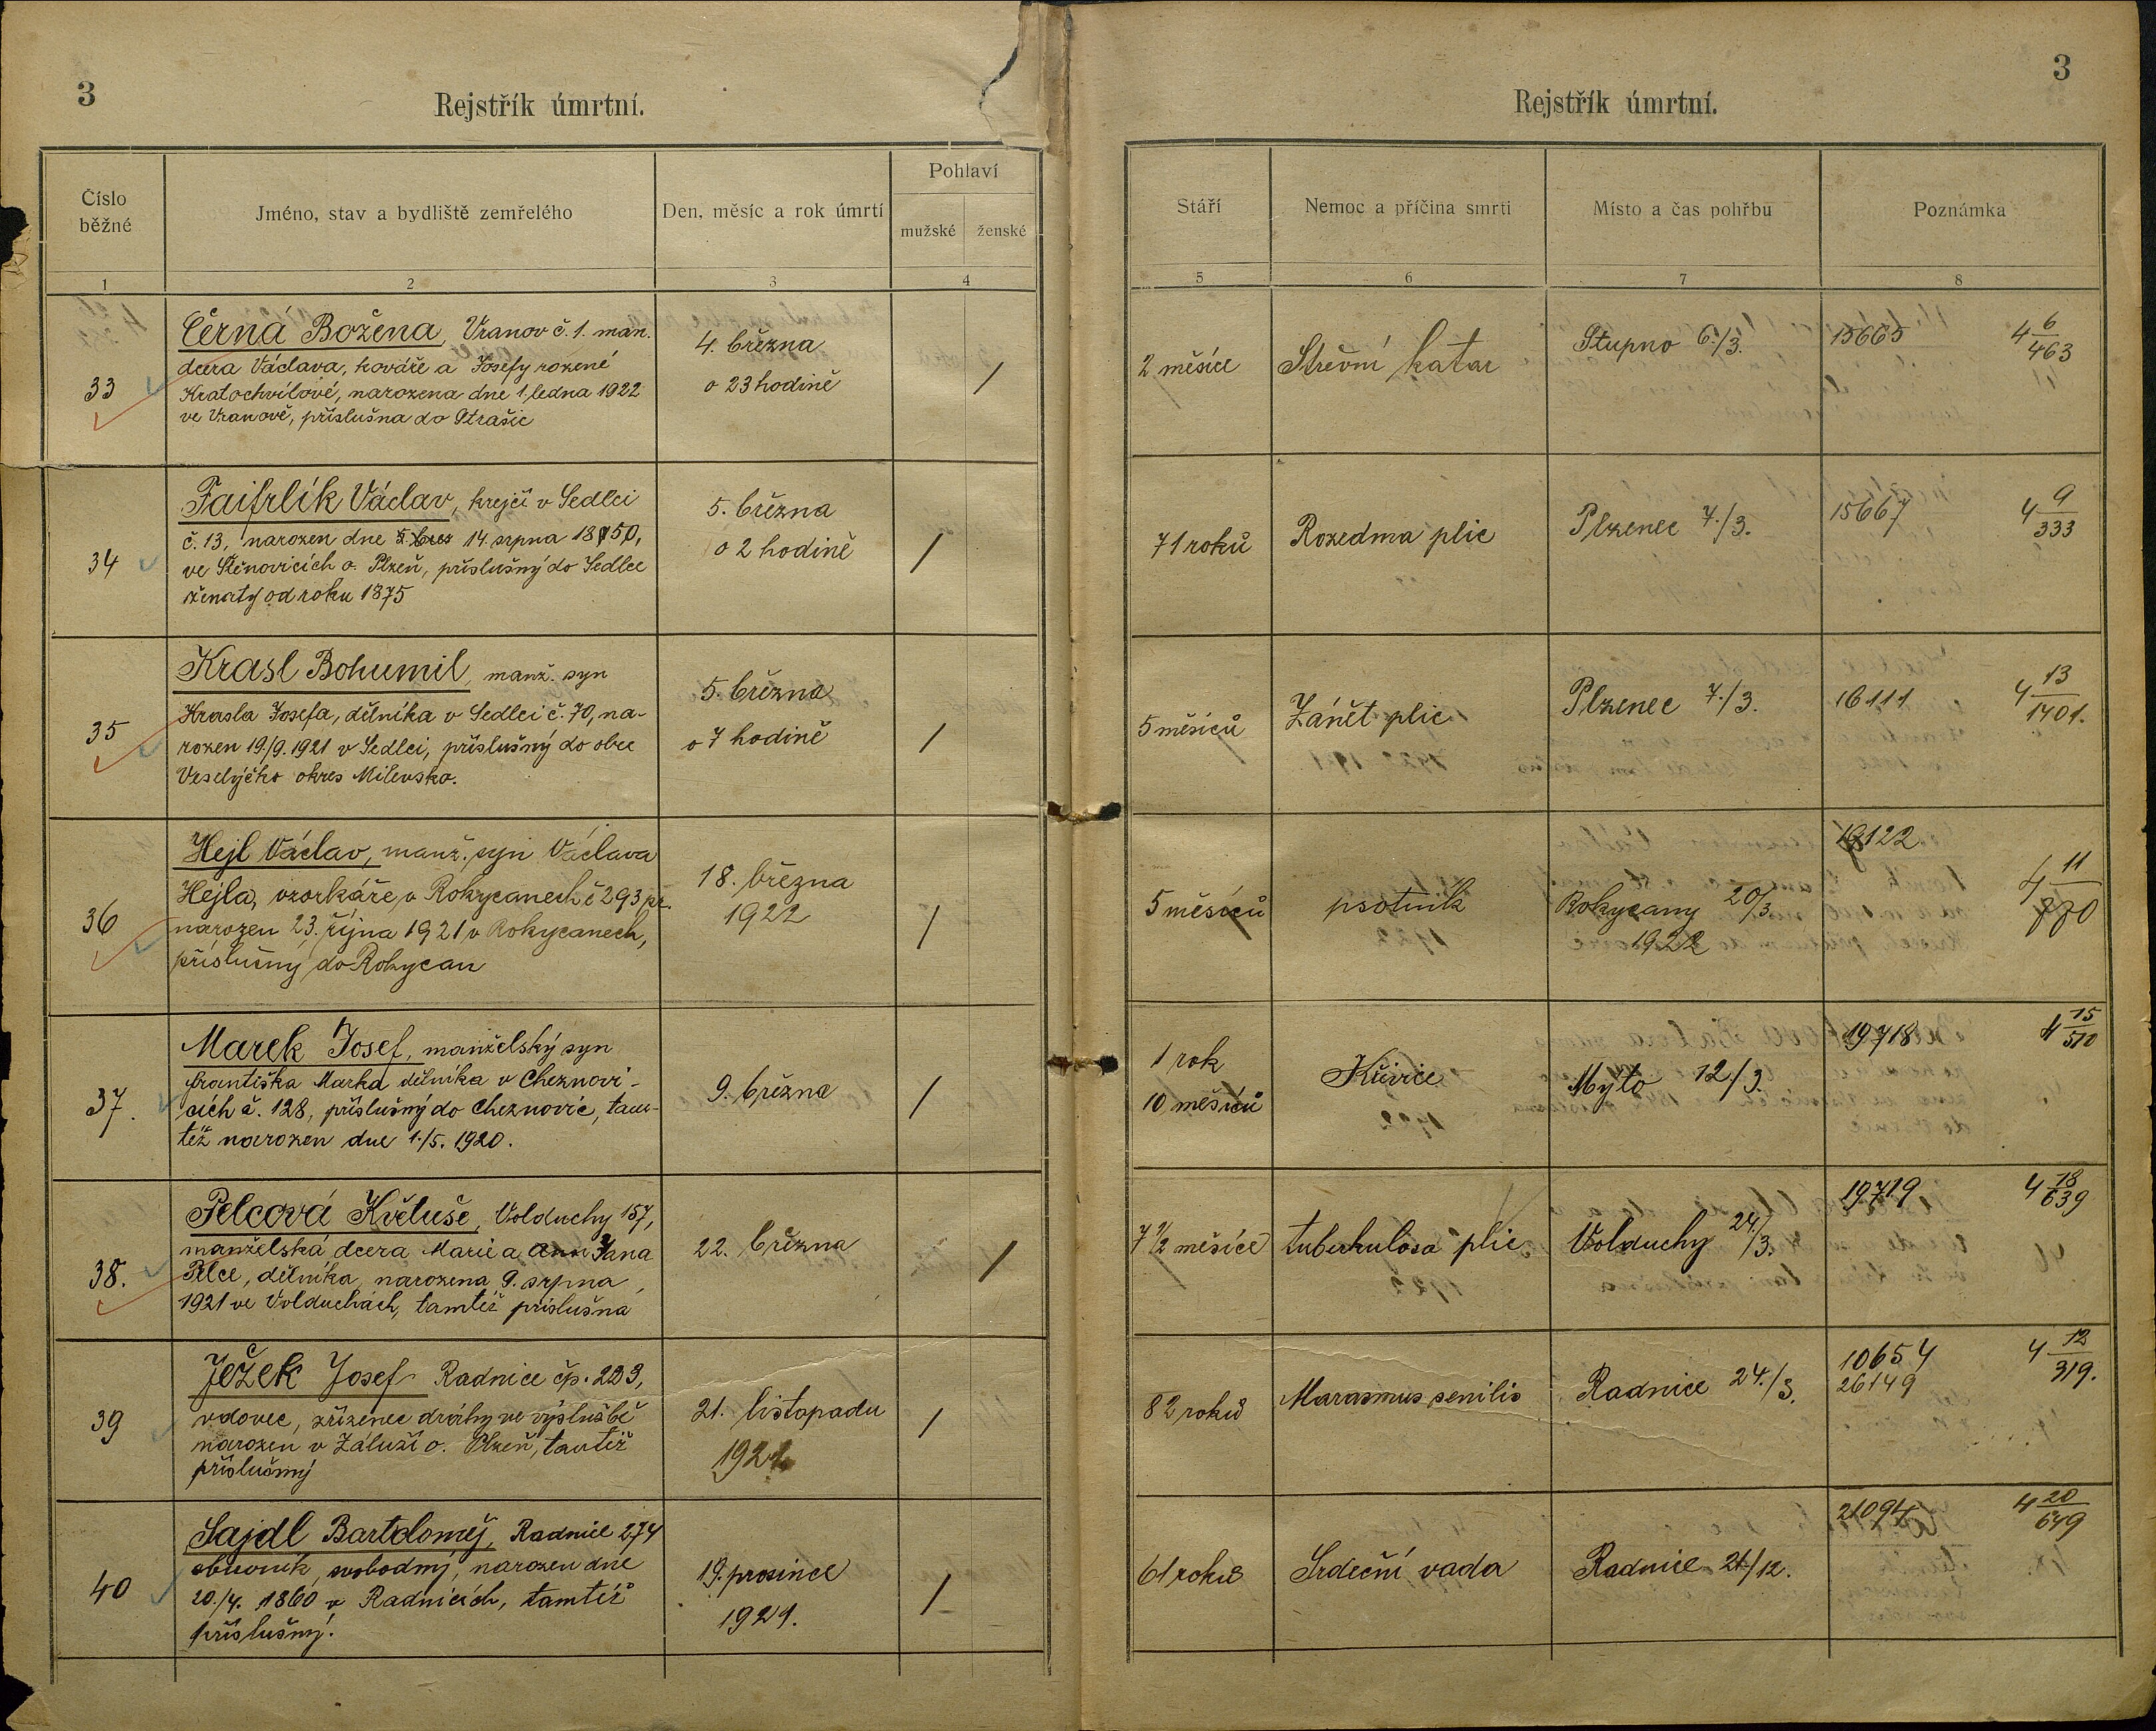 3
Rejstřík úmrtní.
Číslo běžné
Jméno, stav a bydliště zemřelého
Den, měsíc a rok úmrtí
Pohlaví
mužské
ženské
1
2
3
4
33
Černá Božena, Vranov č. 1. man.
dcera Václava, kováře a Josefy rozené
Kratochvílové, narozena dne 1. ledna 1922
ve Vranově, příslušna do Strašic
4. března
o 23 hodině
/
34
Faifrlík Václav, krejčí v Sedlci
č. 13, narozen dne 14. srpna 1850,
ve Štěnovicích o. Plzeň, příslušný do Sedlce
ženatý od roku 1875
5. března
o 2 hodině
/
35
Krasl Bohumil, manž. syn
Krasla Josefa, dělníka v Sedlci č. 70, na-
rozen 19./9. 1921 v Sedlci, příslušný do obce
okres Milevsko.
5. března
o 7 hodině
/
36
Hejl Václav, manž. syn Václava
Hejla, vzorkáře v Rokycanech č 293
narozen 23. října 1921 v Rokycanech,
příslušný do Rokycan
18. března
1922
/
37.
Marek Josef, manželský syn
františka Marka dělníka v Cheznovi-
cích č. 128, příslušný do Cheznovic, tam-
též narozen dne 1./5. 1920.
9. března
/
38.
Pelcová Květuše, Volduchy 157,
manželská dcera Marie a Jana
Pelce, dělníka, narozena 9. srpna
1921 ve Volduchách, tamtéž příslušna
22. března
/
39
Ježek Josef Radnice čp. 223,
vdovec, zřízenec dráhy ve výslužbě
narozen v Záluží o. Plzeň, tamtéž
příslušný
21. listopadu
1921
/
40
Sajdl Bartoloměj, Radnice 274
obuvník, svobodný, narozen dne
20./4. 1860 v Radnicích, tamtéž
příslušný.
19. prosince
1921.
/
3
Rejstřík úmrtní.
Stáří
Nemoc a příčina smrti
Místo a čas pohřbu
Poznámka
5
6
7
8
2 měsíce
Střevní katar
Stupno 6./3.
15665
4 6/463
71 roků
Rozedma plic
Plzenec 7./3.
15667
4 9/333
5 měsíců
Zánět plic
Plzenec 7./3.
16111
4 13/1401.
5 měsíců
psotník
Rokycany 20/3.
1922
19122
4 11/770
1 rok
10 měsíců
Křivice
Mýto 12./3.
19718
4 15/510
7 1/2 měsíce
tuberkulosa plic
Volduchy 24/3.
19719
4 18/639
82 roků
Marasmus senilis
Radnice 24./3.
10654
26149
4 12/319.
61 roků
Srdeční vada
Radnice 21/12.
21094
4 20/649